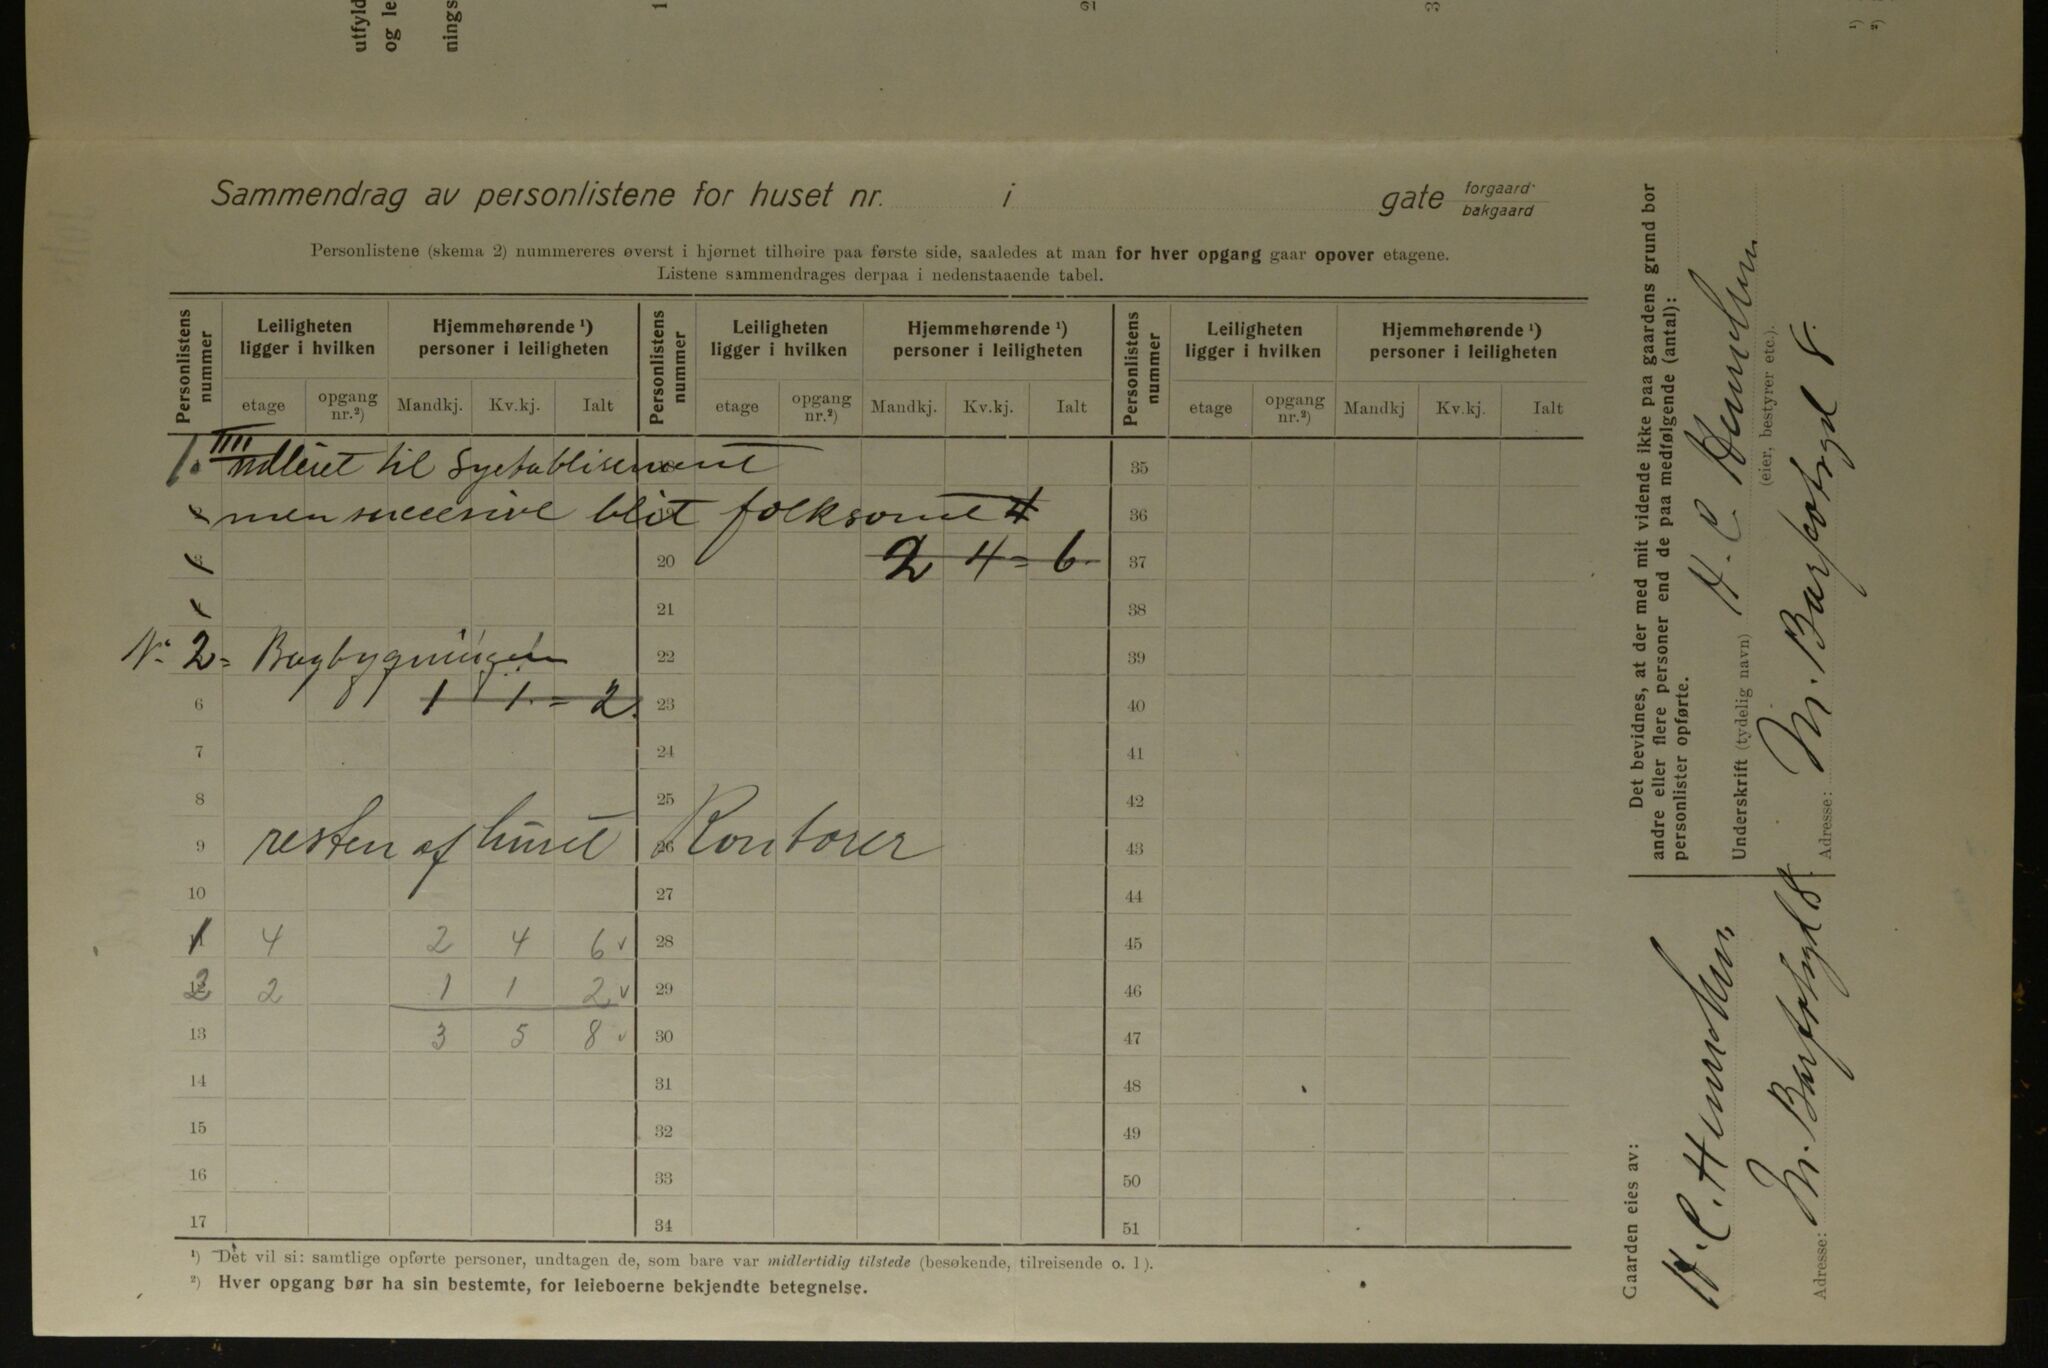 utfyld
og le
nings
1
2
3
1)
2)
Sammendrag av personlistene for huset nr. i gate forgaard
bakgaard
Personlistene (skema 2) nummereres øverst i hjørnet tilhøire paa første side, saaledes at man for hver opgang gaar opover etagene.
Listene sammendrages derpaa i nedenstaaende tabel.
Personlistens nummer
Leiligheten ligger i hvilken
Hjemmehørende ¹) personer i leiligheten
etage opgang nr.²) Mandkj. Kv.kj. Ialt
Personlistens nummer
Leiligheten ligger i hvilken
Hjemmehørende ¹) personer i leiligheten
etage opgang nr.²) Mandkj. Kv.kj. Ialt
Personlistens nummer
Leiligheten ligger i hvilken
Hjemmehørende ¹) personer i leiligheten
etage opgang nr.²) Mandkj Kv.kj. Ialt
1. IIII udleiet til Syetablisement 35
men succesive blit folksomt 36
20 2 4 = 6 37
21 38
No 2 = Bagbygningen 22 39
6 1 1 = 2. 23 40
7 24 41
8 25 42
9 resten af huset 26 Kontorer 43
10 27 44
1 4 2 4 6 v 28 45
2 2 1 1 2 v 29 46
13 3 5 8 v 30 47
14 31 48
15 32 49
16 33 50
17 34 51
¹) Det vil si: samtlige opførte personer, undtagen de, som bare var midlertidig tilstede (besøkende, tilreisende o. l).
²) Hver opgang bør ha sin bestemte, for leieboerne bekjendte betegnelse.
Det bevidnes, at der med mit vidende ikke paa gaardens grund bor
andre eller flere personer end de paa medfølgende (antal):
personlister opførte.
Underskrift (tydelig navn) H. C.
(eier, bestyrer etc.).
Adresse: N. Barfotsgt 8.
Gaarden eies av:
H. C.
Adresse: N. Barfotsgt 8.